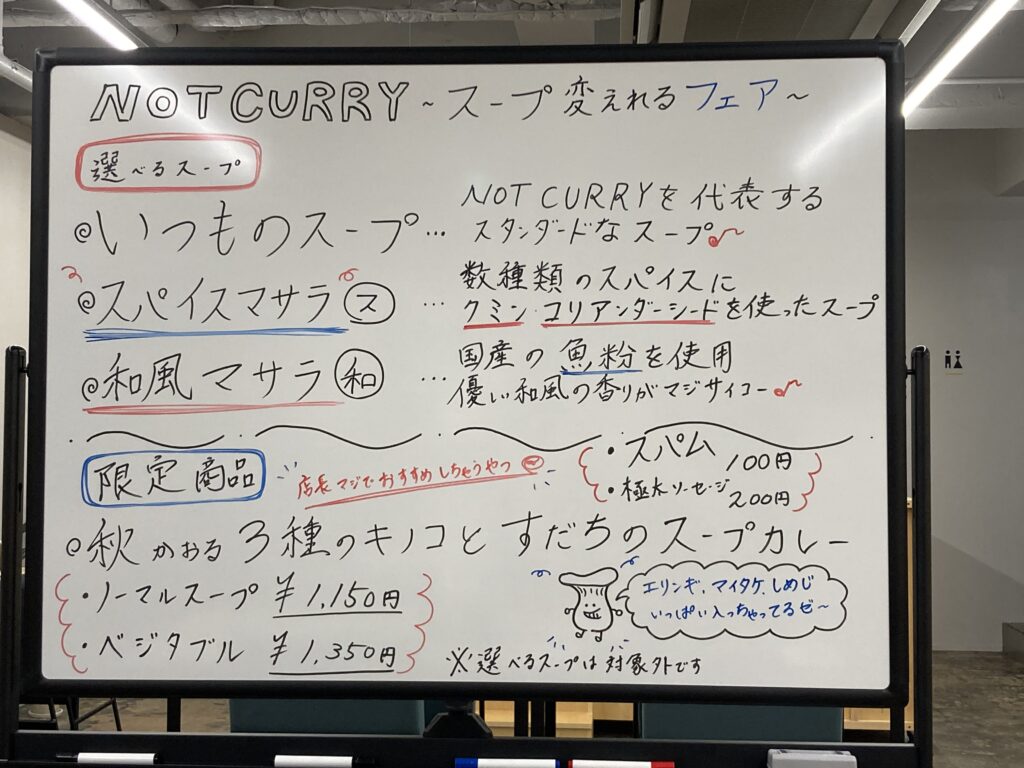 NOT CURRY ~スープ変えれるフェア~
選べるスープ
いつものスープ… NOT CURRYを代表する
スタンダードなスープ♪
スパイスマサラ ス … 数種類のスパイスに
クミン・コリアンダーシードを使ったスープ
和風マサラ 和 … 国産の魚粉を使用
優しい和風の香りがマジサイコー♪
限定商品
店長マジでおすすめしちゃうやつ
・スパム 100円
・極太ソーセージ 200円
秋かおる3種のキノコとすだちのスープカレー
・ノーマルスープ ¥1,150円
・ベジタブル ¥1,350円
エリンギ、マイタケ、しめじ
いっぱい入っちゃってるゼ~
※選べるスープは対象外です